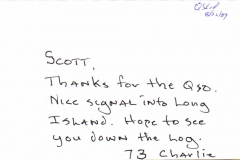 SCOTT,
THANKS FOR THE QSO.
NICE SIGNAL INTO LONG
ISLAND. HOPE TO SEE
YOU DOWN THE LOG.
73 Charlie